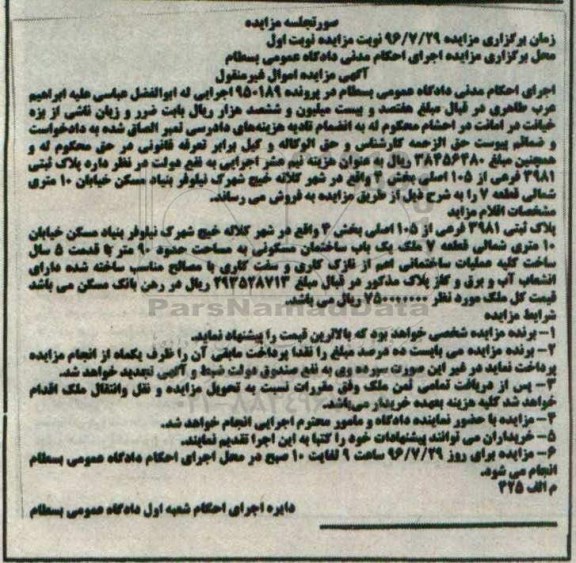 صورتجلسه مزایده
زمان برگزاری مزایده ۹۶/۷/۲۹ نوبت مزایده نوبت اول
محل برگزاری مزایده اجرای احکام مدنی دادگاه عمومی بسطام
آگهی مزایده اموال غیرمنقول
اجرای احکام مدنی دادگاه عمومی بسطام در پرونده ۹۵۰۱۸۹ اجرایی له ابوالفضل عباسی علیه ابراهیم
عرب طاهری در قبال مبلغ هفتصد و بیست میلیون و ششصد هزار ریال بابت ضرر و زیان ناشی از بزه
خیانت در امانت در احشام محکوم له به انضمام تادیه هزینه‌های دادرسی تمبر الصاق شده به دادخواست
و ضمائم پیوست حق الزحمه کارشناس و حق الوکاله و کیل برابر تعرفه قانونی در حق محکوم له و
همچنین مبلغ ۳۸۴۵۶۳۸۰ ریال به عنوان هزینه نیم عشر اجرایی به نفع دولت در نظر داره پلاک ثبتی
۳۹۸۱ فرعی از ۱۰۵ اصلی بخش ۴ واقع در شهر کلاته خیج شهرک نیلوفر بنیاد مسکن خیابان ۱۰ متری
شمالی قطعه ۷ را به شرح ذیل از طریق مزایده به فروش می رساند.
مشخصات اقلام مزاید
پلاک ثبتی ۳۹۸۱ فرعی از ۱۰۵ اصلی بخش ۴ واقع در شهر کلاته خیج شهرک نیلوفر بنیاد مسکن خیابان
۱۰ متری شمالی قطعه ۷ ملک یک باب ساختمان مسکونی به مساحت حدود ۹۰ متر با قدمت ۵ سال
ساخت کلیه عملیات ساختمانی اعم از نازک کاری و سفت کاری با مصالح مناسب ساخته شده دارای
انشعاب آب و برق و گاز پلاک مذکور در قبال مبلغ ۲۹۳۵۲۸۷۱۳ ریال در رهن بانک مسکن می باشد
قیمت کل ملک مورد نظر ۷۵۰۰۰۰۰۰۰ ریال می باشد.
ParsNamadData
شرایط مزایده
۱- برنده مزایده شخصی خواهد بود که بالاترین قیمت را پیشنهاد نماید.
۲- برنده مزایده می بایست ده درصد مبلغ را نقدا پرداخت مابقی آن را ظرف یکماه از انجام مزایده
پرداخت نماید در غیر این صورت سپرده وی به نفع صندوق دولت ضبط و آگهی تجدید خواهد شد.
۳- پس از دریافت تمامی ثمن ملک وفق مقررات نسبت به تحویل مزایده و نقل وانتقال ملک اقدام
خواهد شد کلیه هزینه بعهده خریدار می‌باشد.
۴- مزایده با حضور نماینده دادگاه و مامور محترم اجرایی انجام خواهد شد.
۵- خریداران می توانند پیشنهادات خود را کتبا به این اجرا تقدیم نمایند.
۶- مزایده برای روز ۹۶/۷/۲۹ ساعت ۹ لغایت ۱۰ صبح در محل اجرای احکام دادگاه عمومی بسطام
انجام می شود.
م الف ۳۲۵
دایره اجرای احکام شعبه اول دادگاه عمومی بسطام